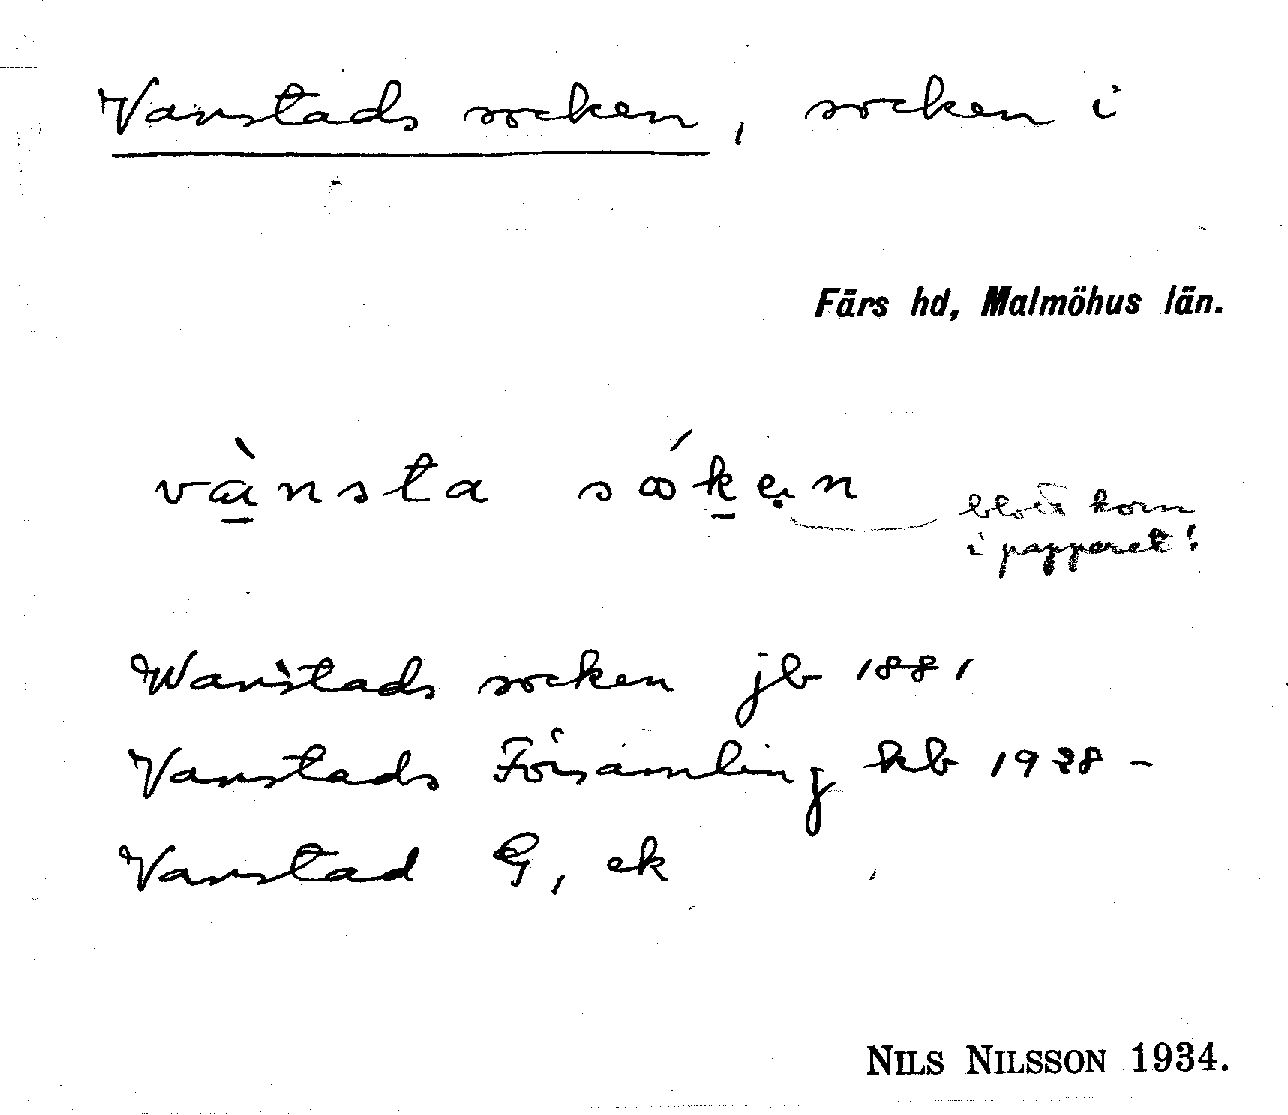 Vanstads socken, socken i
Färs hd, Malmöhus län.
và̱nsta sóḵen
blott korn
i papperet!
Wanstads socken jb 1881
Vanstads Församling kb 1928-
Vanstad G, ek
NILS NILSSON 1934.